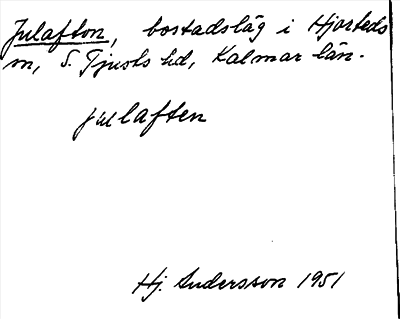 Julafton, bostadsläg i Hjorteds
sn, S. Tjusts hd, Kalmar län.
julaften
Hj. Andersson 1951